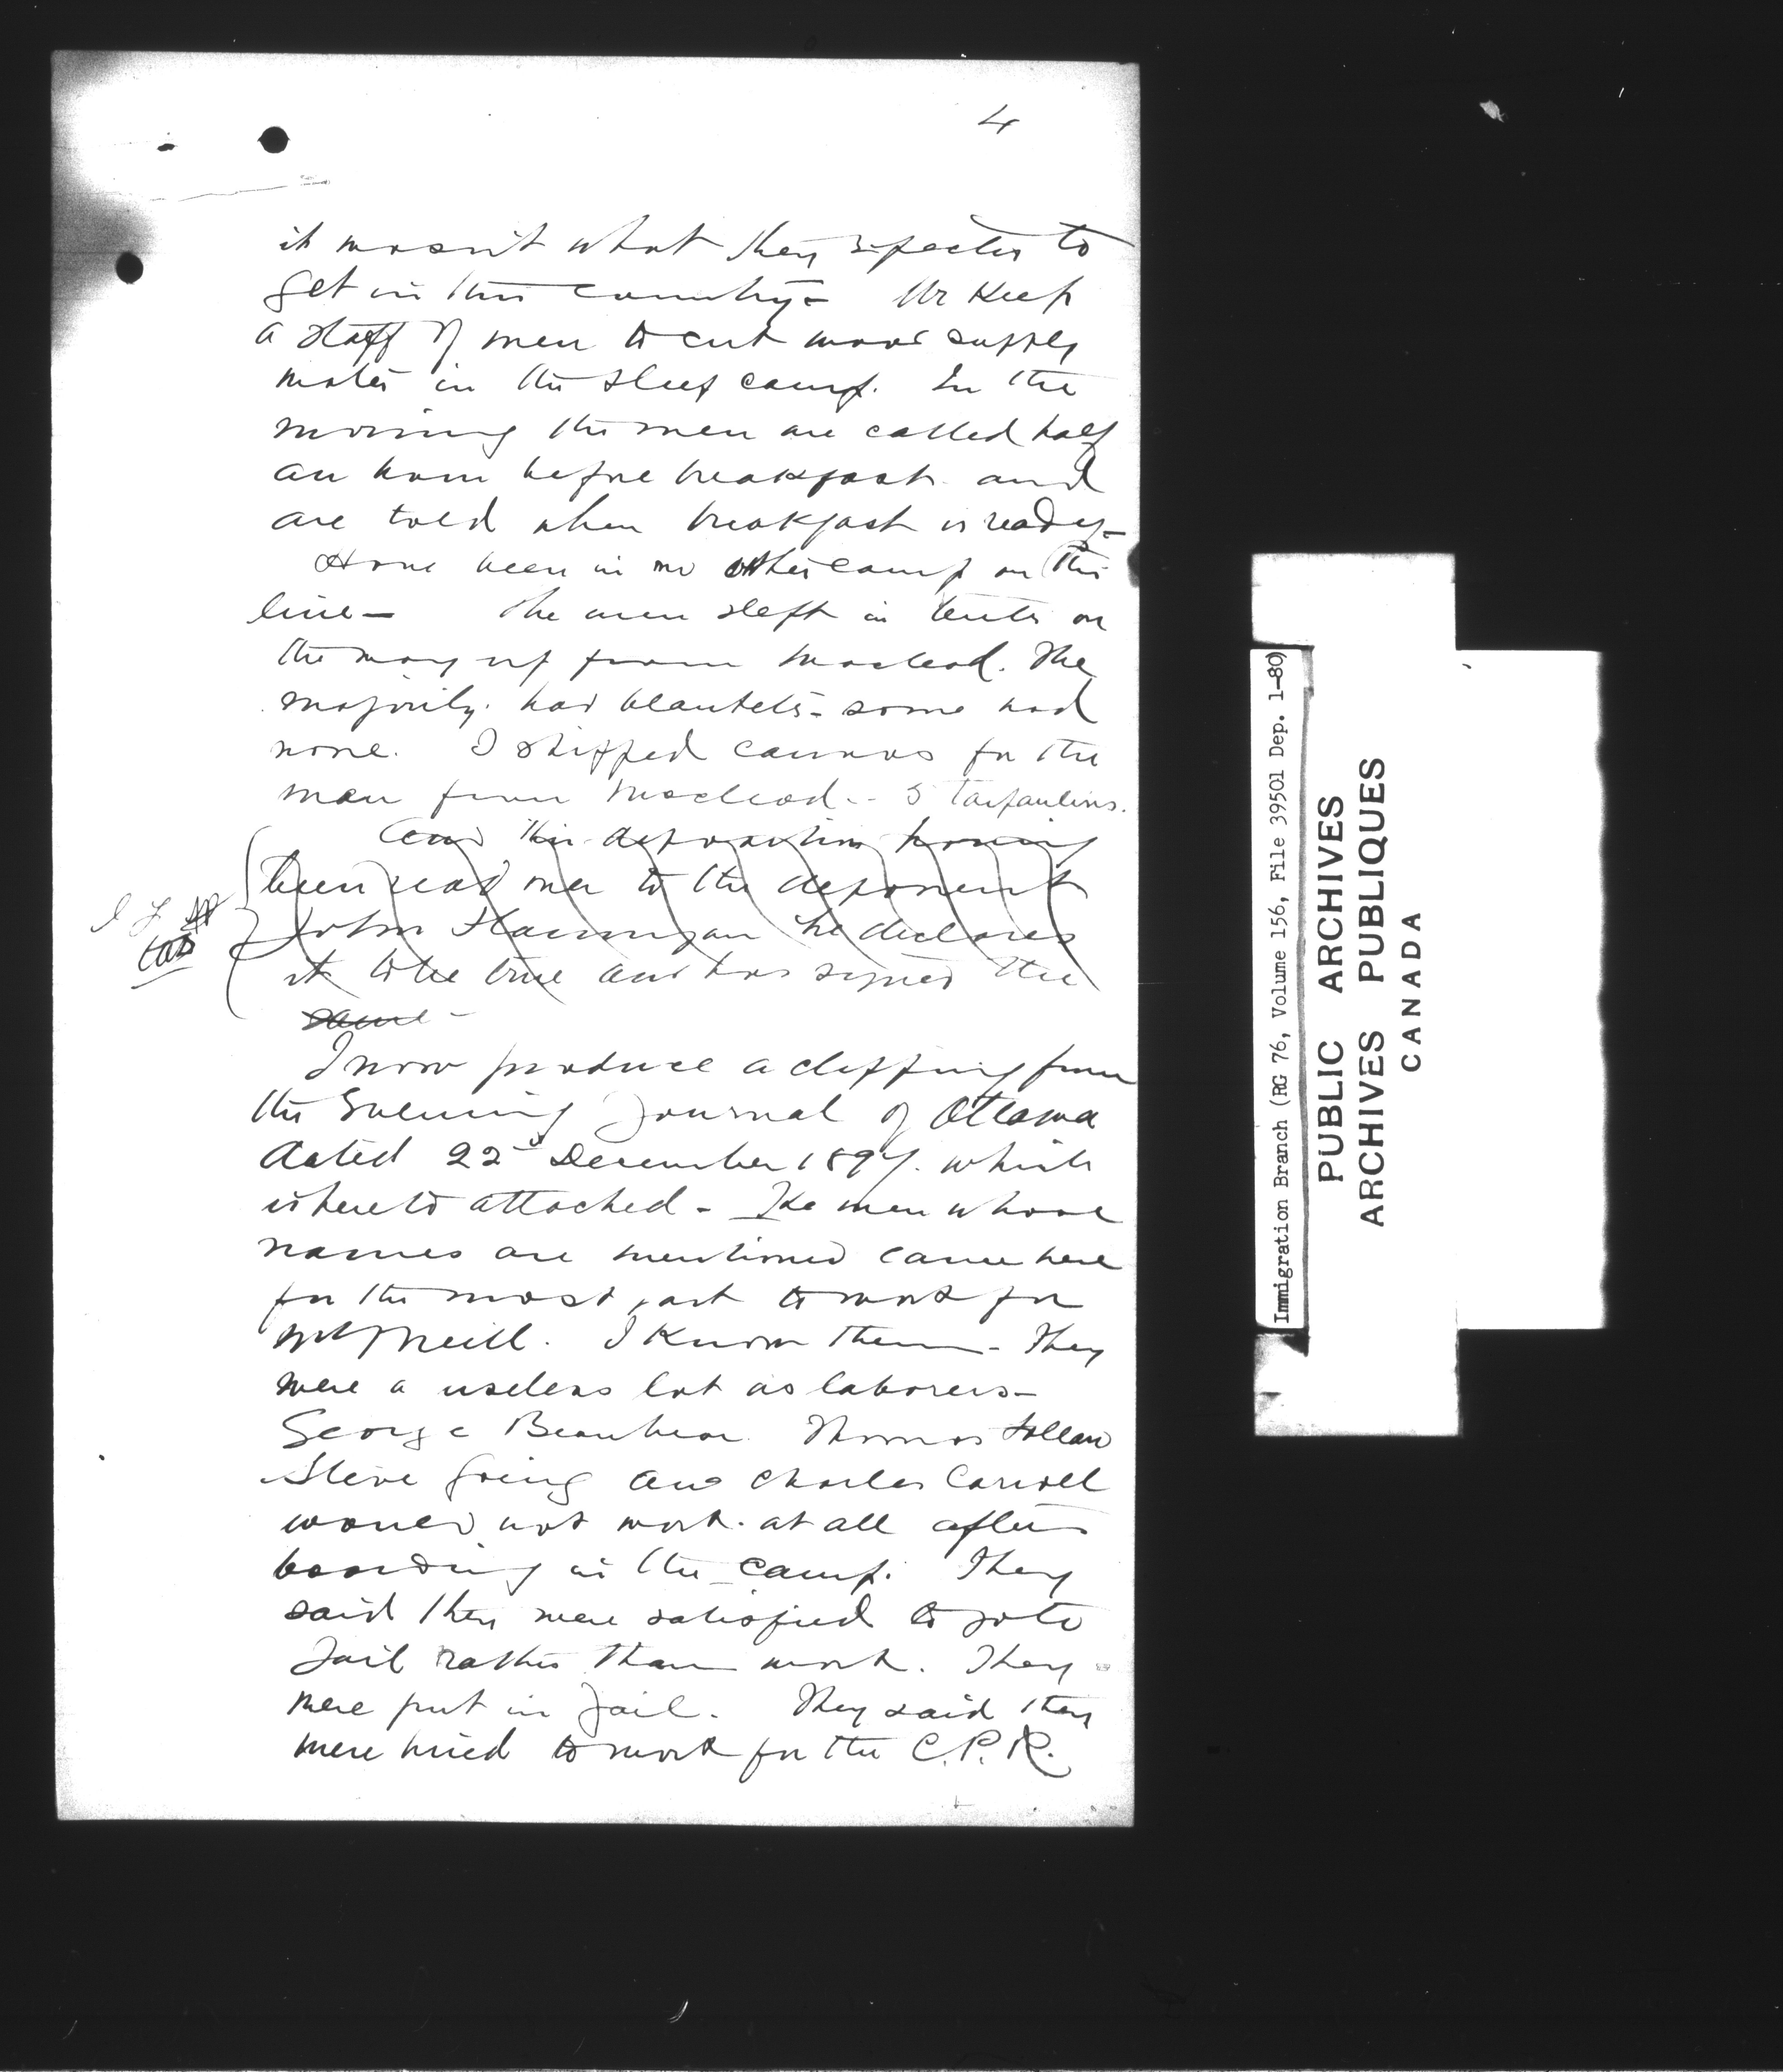 4
it wasn't what they expected to
get in this country - We keep
a staff of men to cut wood supply
water in the sleep camp. In the
morning the men are called half
an hour before breakfast and
are told when breakfast is ready -
Have been in no other camp on this
line - The men slept in tents on
the way up from Macleod. The
majority had blankets - some had
none. I shipped canvas for the
men from Macleod - 5 tarpaulins.
And this deposition having
been read over to the deponent
John Hannigan he declares
it to be true and has signed the
same -
I now produce a clipping from
the Evening Journal of Ottawa
dated 22d December 1897. which
is hereto attached - The men whose
names are mentioned came here
for the most part to work for
McNeill. I know them - They
were a useless lot as laborers -
George Thomas
Steve Going and Charles Carroll
would not work at all after
boarding in the camp. They
said they were satisfied to go to
Jail rather than work. They
were put in Jail. They said they
were hired to work for the C.P.R.
Immigration Branch (RG 76, Volume 156, File 39501 Dep. 1-80)
PUBLIC ARCHIVES
ARCHIVES PUBLIQUES
CANADA